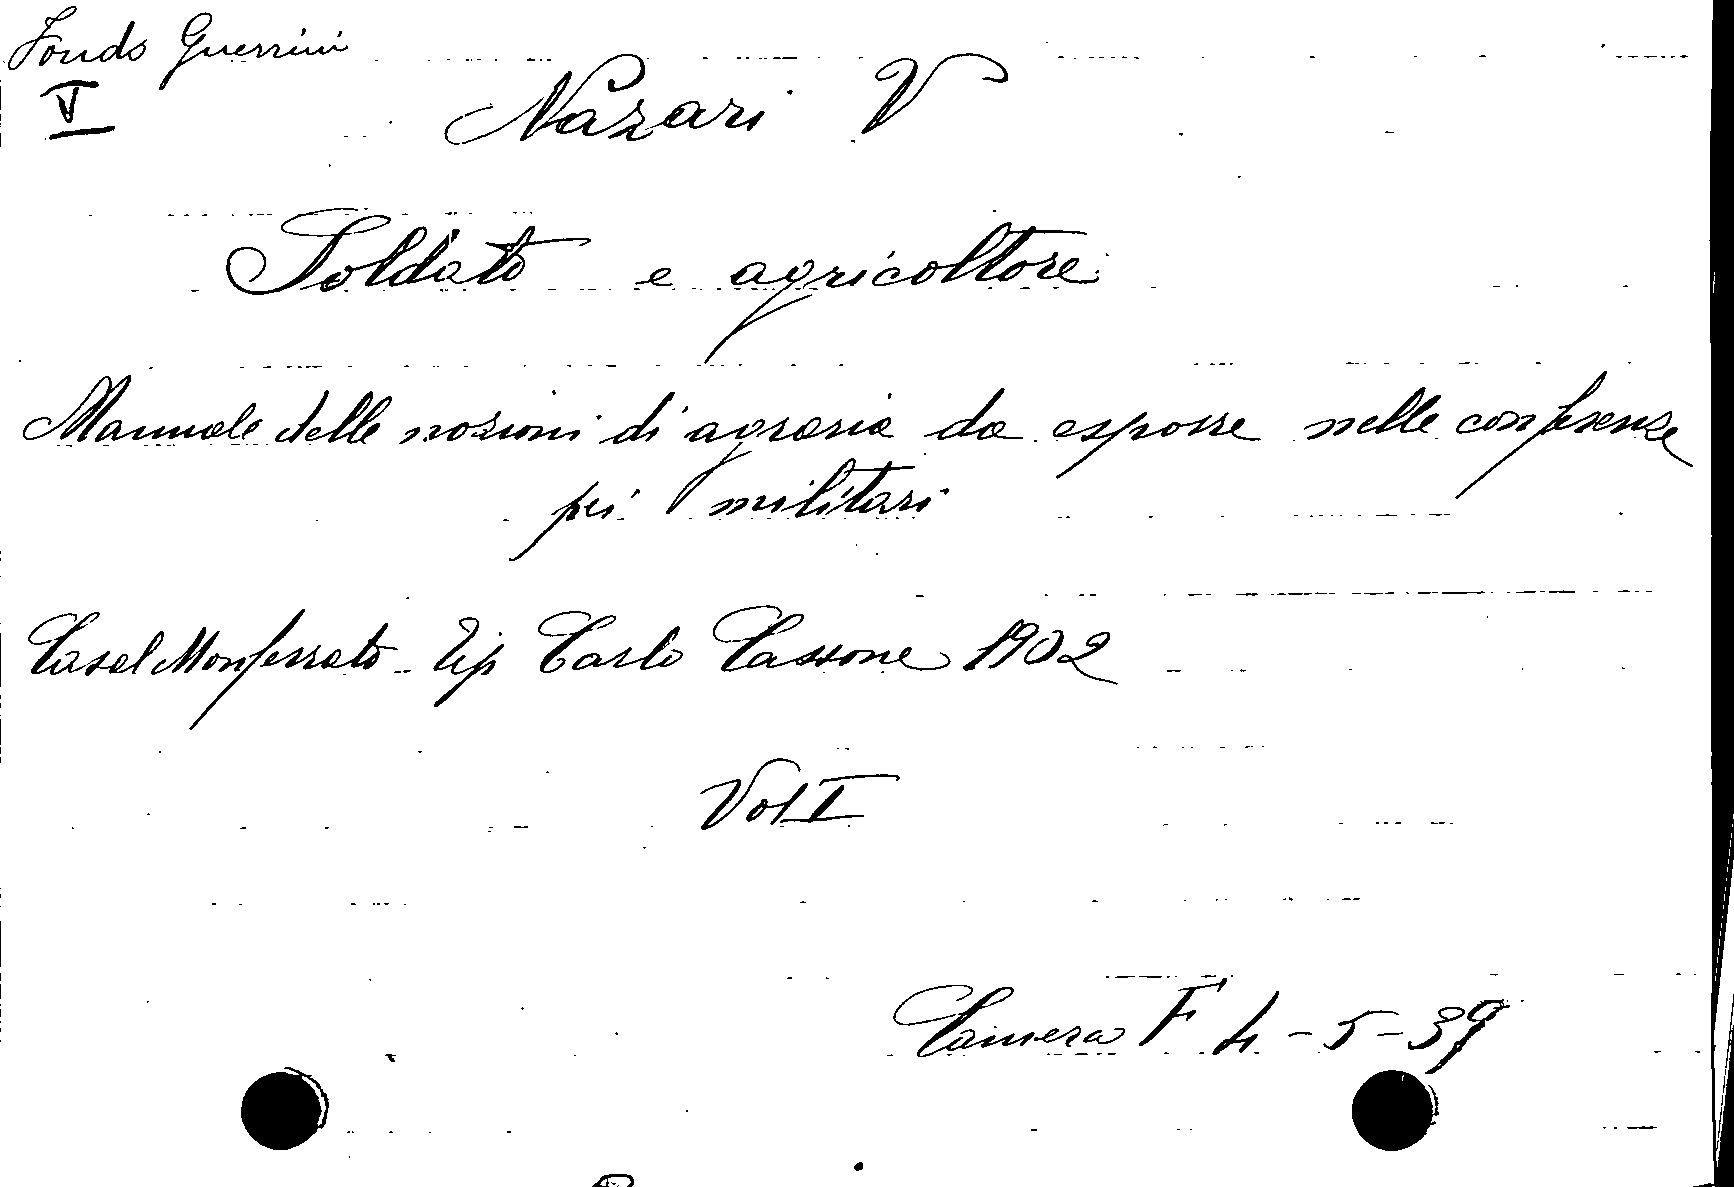 Fondo Guerrini
V
Nazari V
Soldato e agricoltore
Manuale delle nozioni di agraria da esporre nelle conferenze
pei militari
Casal Monferrato - Tip Carlo Cassone 1902
Vol I
Camera F 4 - 5 - 39